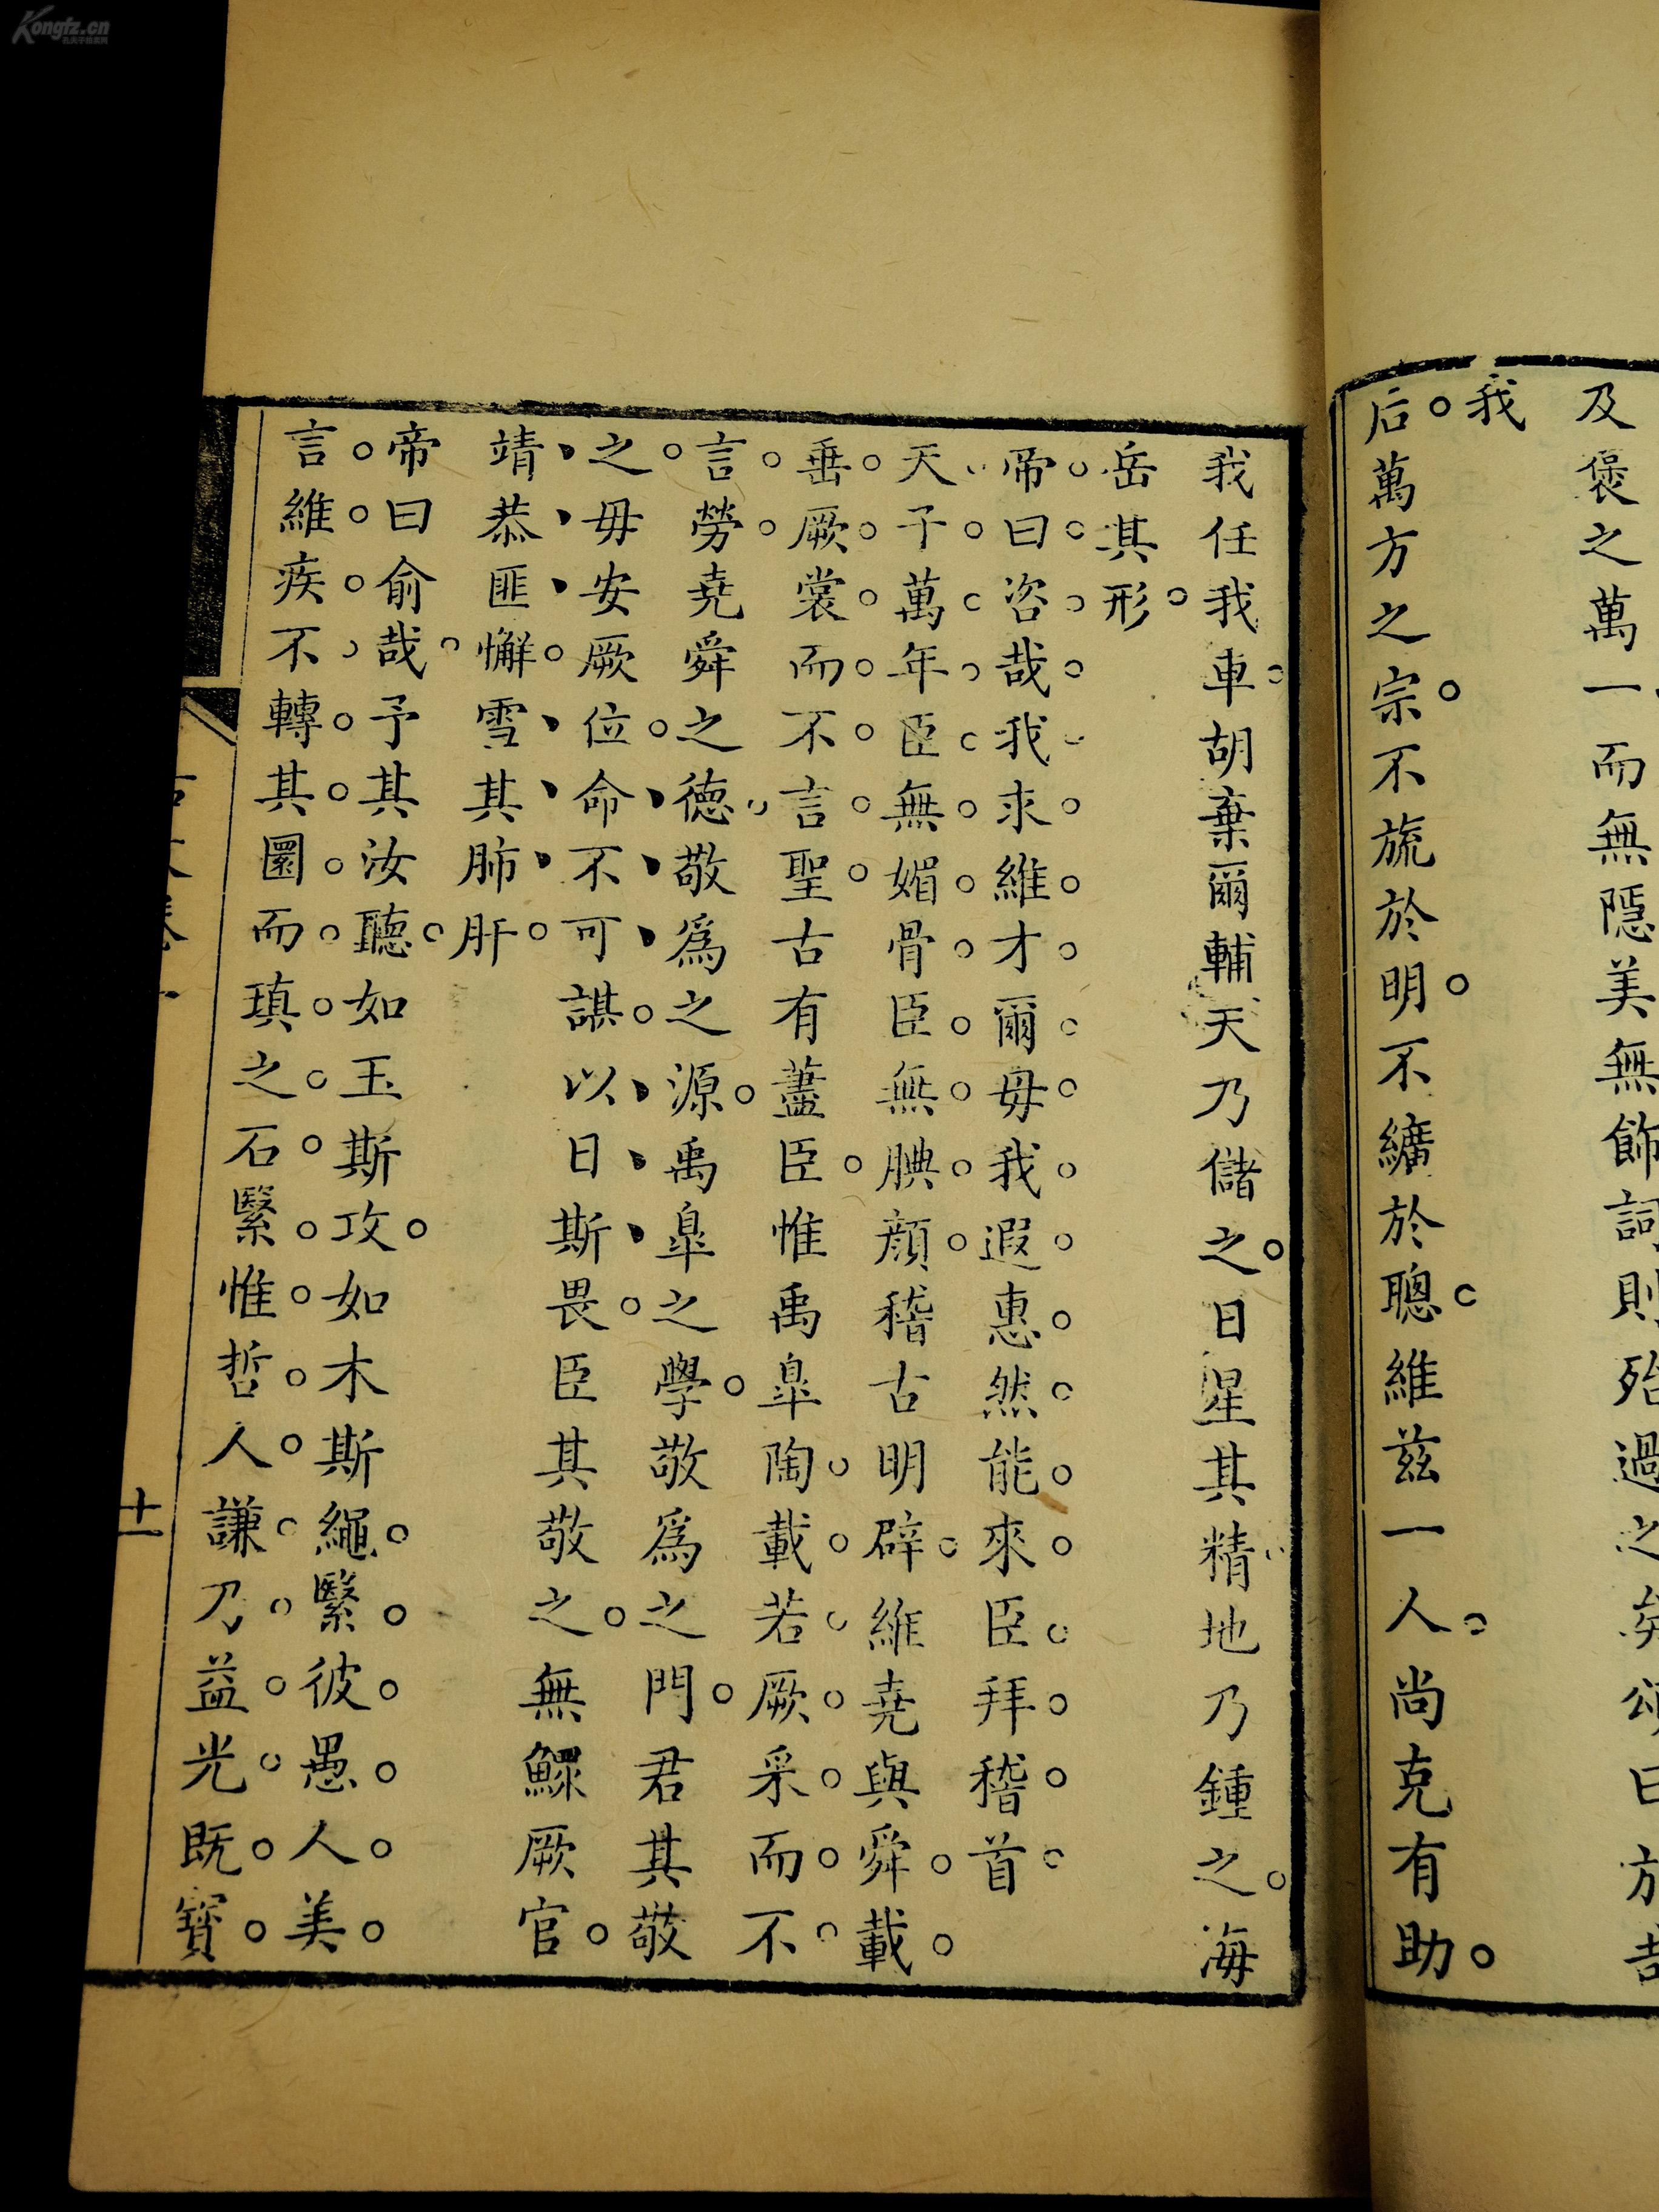 及褒之萬一而無隱美無飾詞則殆過之矣頌曰方
我
后萬方之宗不旒於明不纊於聰維茲一人尚克有助
我任我車胡棄爾輔天乃儲之日星其精地乃鍾之海
岳其形
帝曰咨哉我求維才爾毋我遐惠然能來臣拜稽首
天子萬年臣無媚骨臣無腆顔稽古明辟維堯與舜載
垂厥裳而不言聖古有藎臣惟禹臯陶載若厥采而不
言勞堯舜之德敬爲之源禹臯之學敬爲之門君其敬
之毋安厥位命不可諶以日斯畏臣其敬之無鰥厥官
靖恭匪懈雪其肺肝
帝曰俞哉予其汝聽如玉斯攻如木斯繩繄彼愚人美
言維疾不轉其圜而瑱之石繄惟哲人謙乃益光既寶
十一
Kongfz.cn